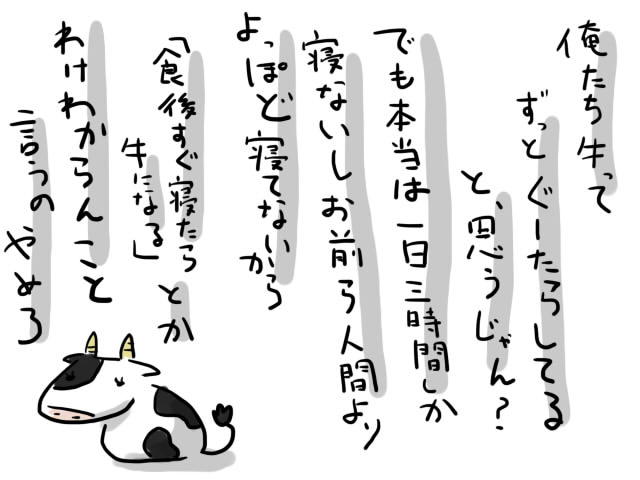 俺たち牛って
ずっとぐーたらしてる
と、思うじゃん?
でも本当は一日三時間しか
寝ないしお前ら人間より
よっぽど寝てないから
「食後すぐ寝たら
牛になる」とか
わけわからんこと
言うのやめろ